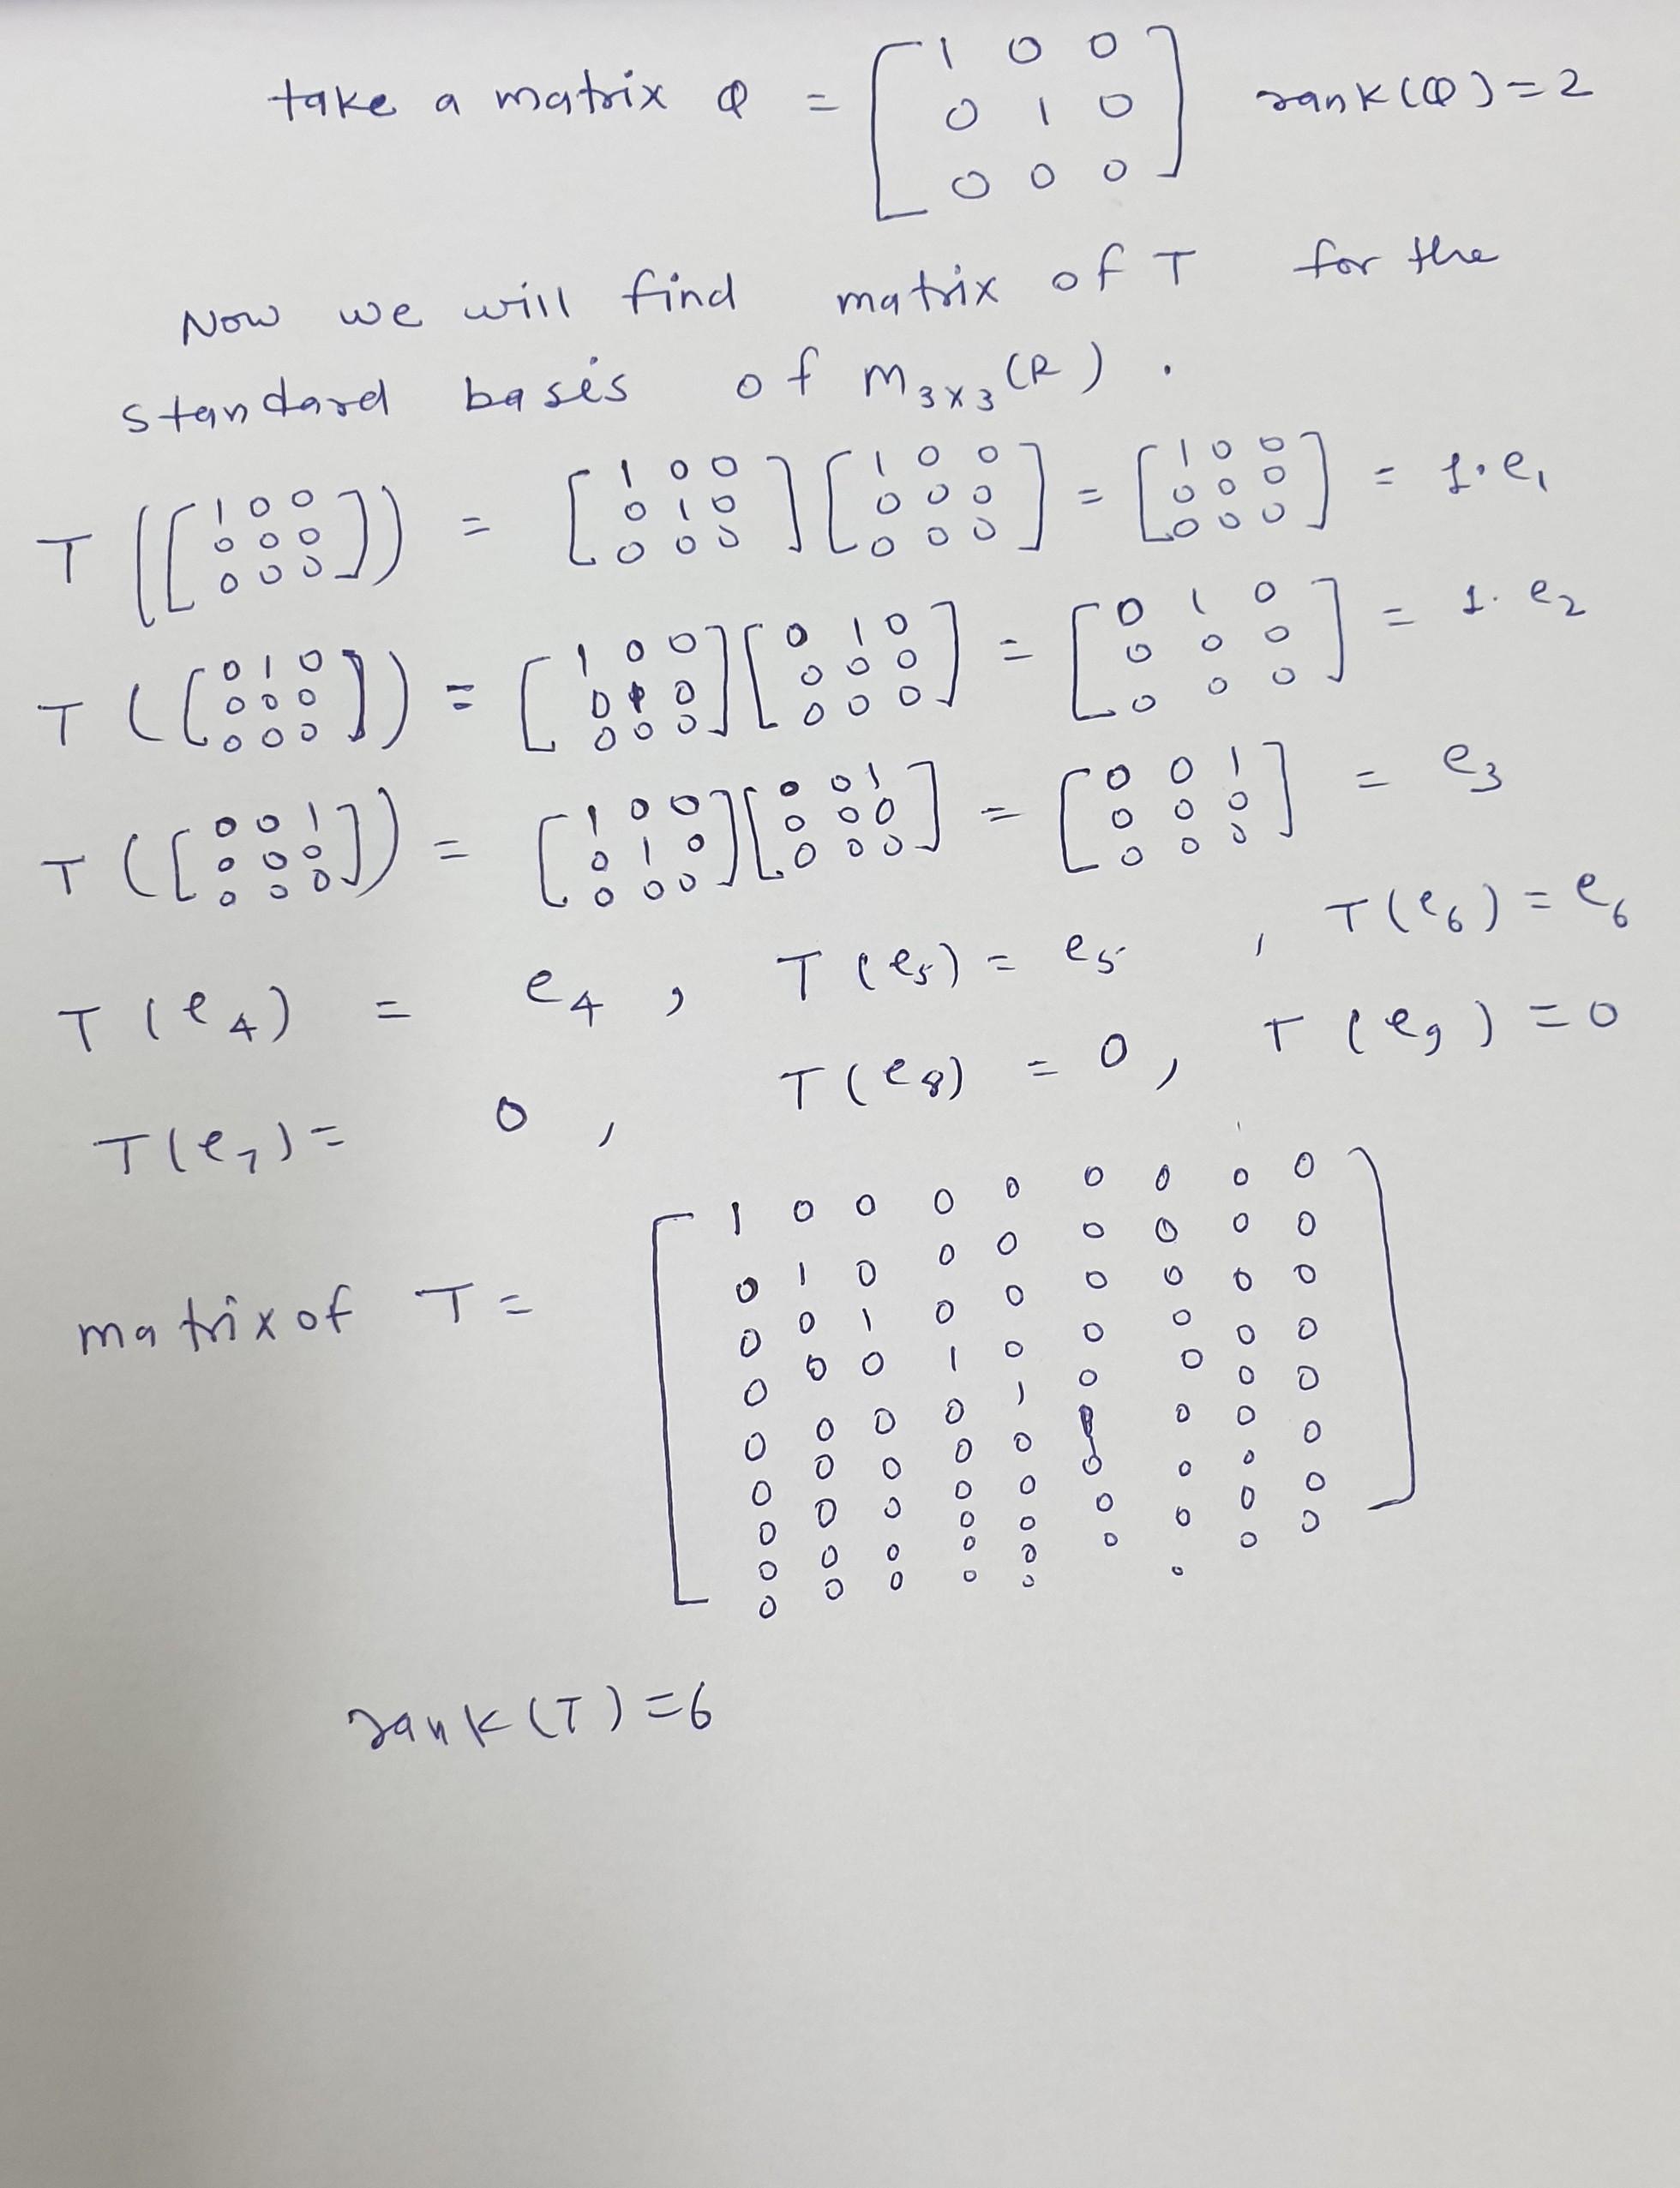 take a matrix Q = [1 0 0; 0 1 0; 0 0 0] rank(Q)=2
Now we will find matrix of T for the
standard basis of M₃ₓ₃(R).
T([1 0 0; 0 0 0; 0 0 0]) = [1 0 0; 0 1 0; 0 0 0][1 0 0; 0 0 0; 0 0 0] = [1 0 0; 0 0 0; 0 0 0] = 1·e₁
T([0 1 0; 0 0 0; 0 0 0]) = [1 0 0; 0 1 0; 0 0 0][0 1 0; 0 0 0; 0 0 0] = [0 1 0; 0 0 0; 0 0 0] = 1·e₂
T([0 0 1; 0 0 0; 0 0 0]) = [1 0 0; 0 1 0; 0 0 0][0 0 1; 0 0 0; 0 0 0] = [0 0 1; 0 0 0; 0 0 0] = e₃
T(e₄) = e₄, T(e₅) = e₅, T(e₆) = e₆
T(e₇) = 0, T(e₈) = 0, T(e₉) = 0
matrix of T =
1 0 0 0 0 0 0 0 0
0 1 0 0 0 0 0 0 0
0 0 1 0 0 0 0 0 0
0 0 0 1 0 0 0 0 0
0 0 0 0 1 0 0 0 0
0 0 0 0 0 1 0 0 0
0 0 0 0 0 0 0 0 0
0 0 0 0 0 0 0 0 0
0 0 0 0 0 0 0 0 0
rank(T)=6